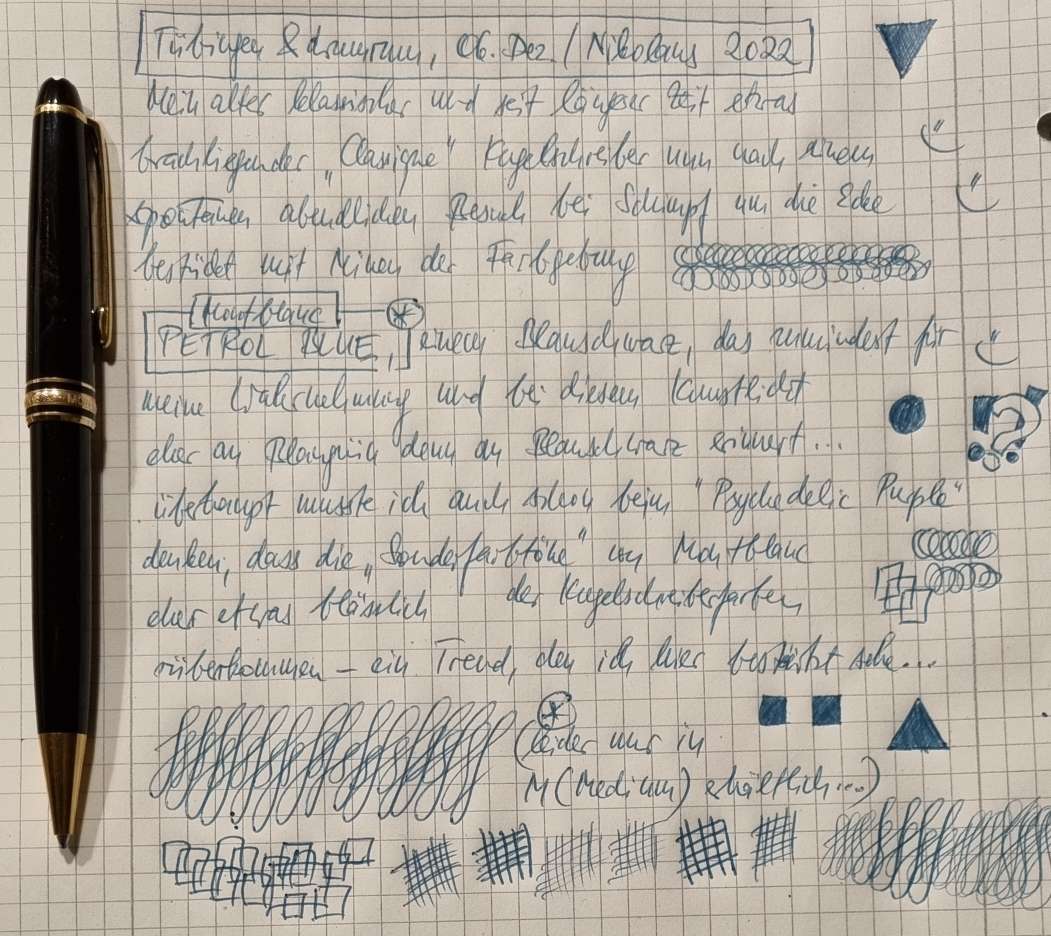 Tübingen & drumrum, 06. Dez. / Nikolaus 2022
Mein alter klassischer und seit längerer Zeit etwas
brachliegender „Classique" Kugelschreiber nun nach einem
spontanen abendlichen Besuch bei Schimpf um die Ecke
bestückt mit Minen der Farbgebung
Montblanc
PETROL BLUE, einem Blauschwarz, das zumindest für
meine Wahrnehmung und bei diesem Kunstlicht
eher an Blaugrün denn an Blauschwarz erinnert...
überhaupt musste ich auch schon beim "Psychedelic Purple"
denken, dass die „Sonderfarbtöne" von Montblanc
der Kugelschreiberfarben
eher etwas blässlich
rüberkommen – ein Trend, den ich hier bestärkt sehe...
(leider nur in
M (Medium) erhältlich...)